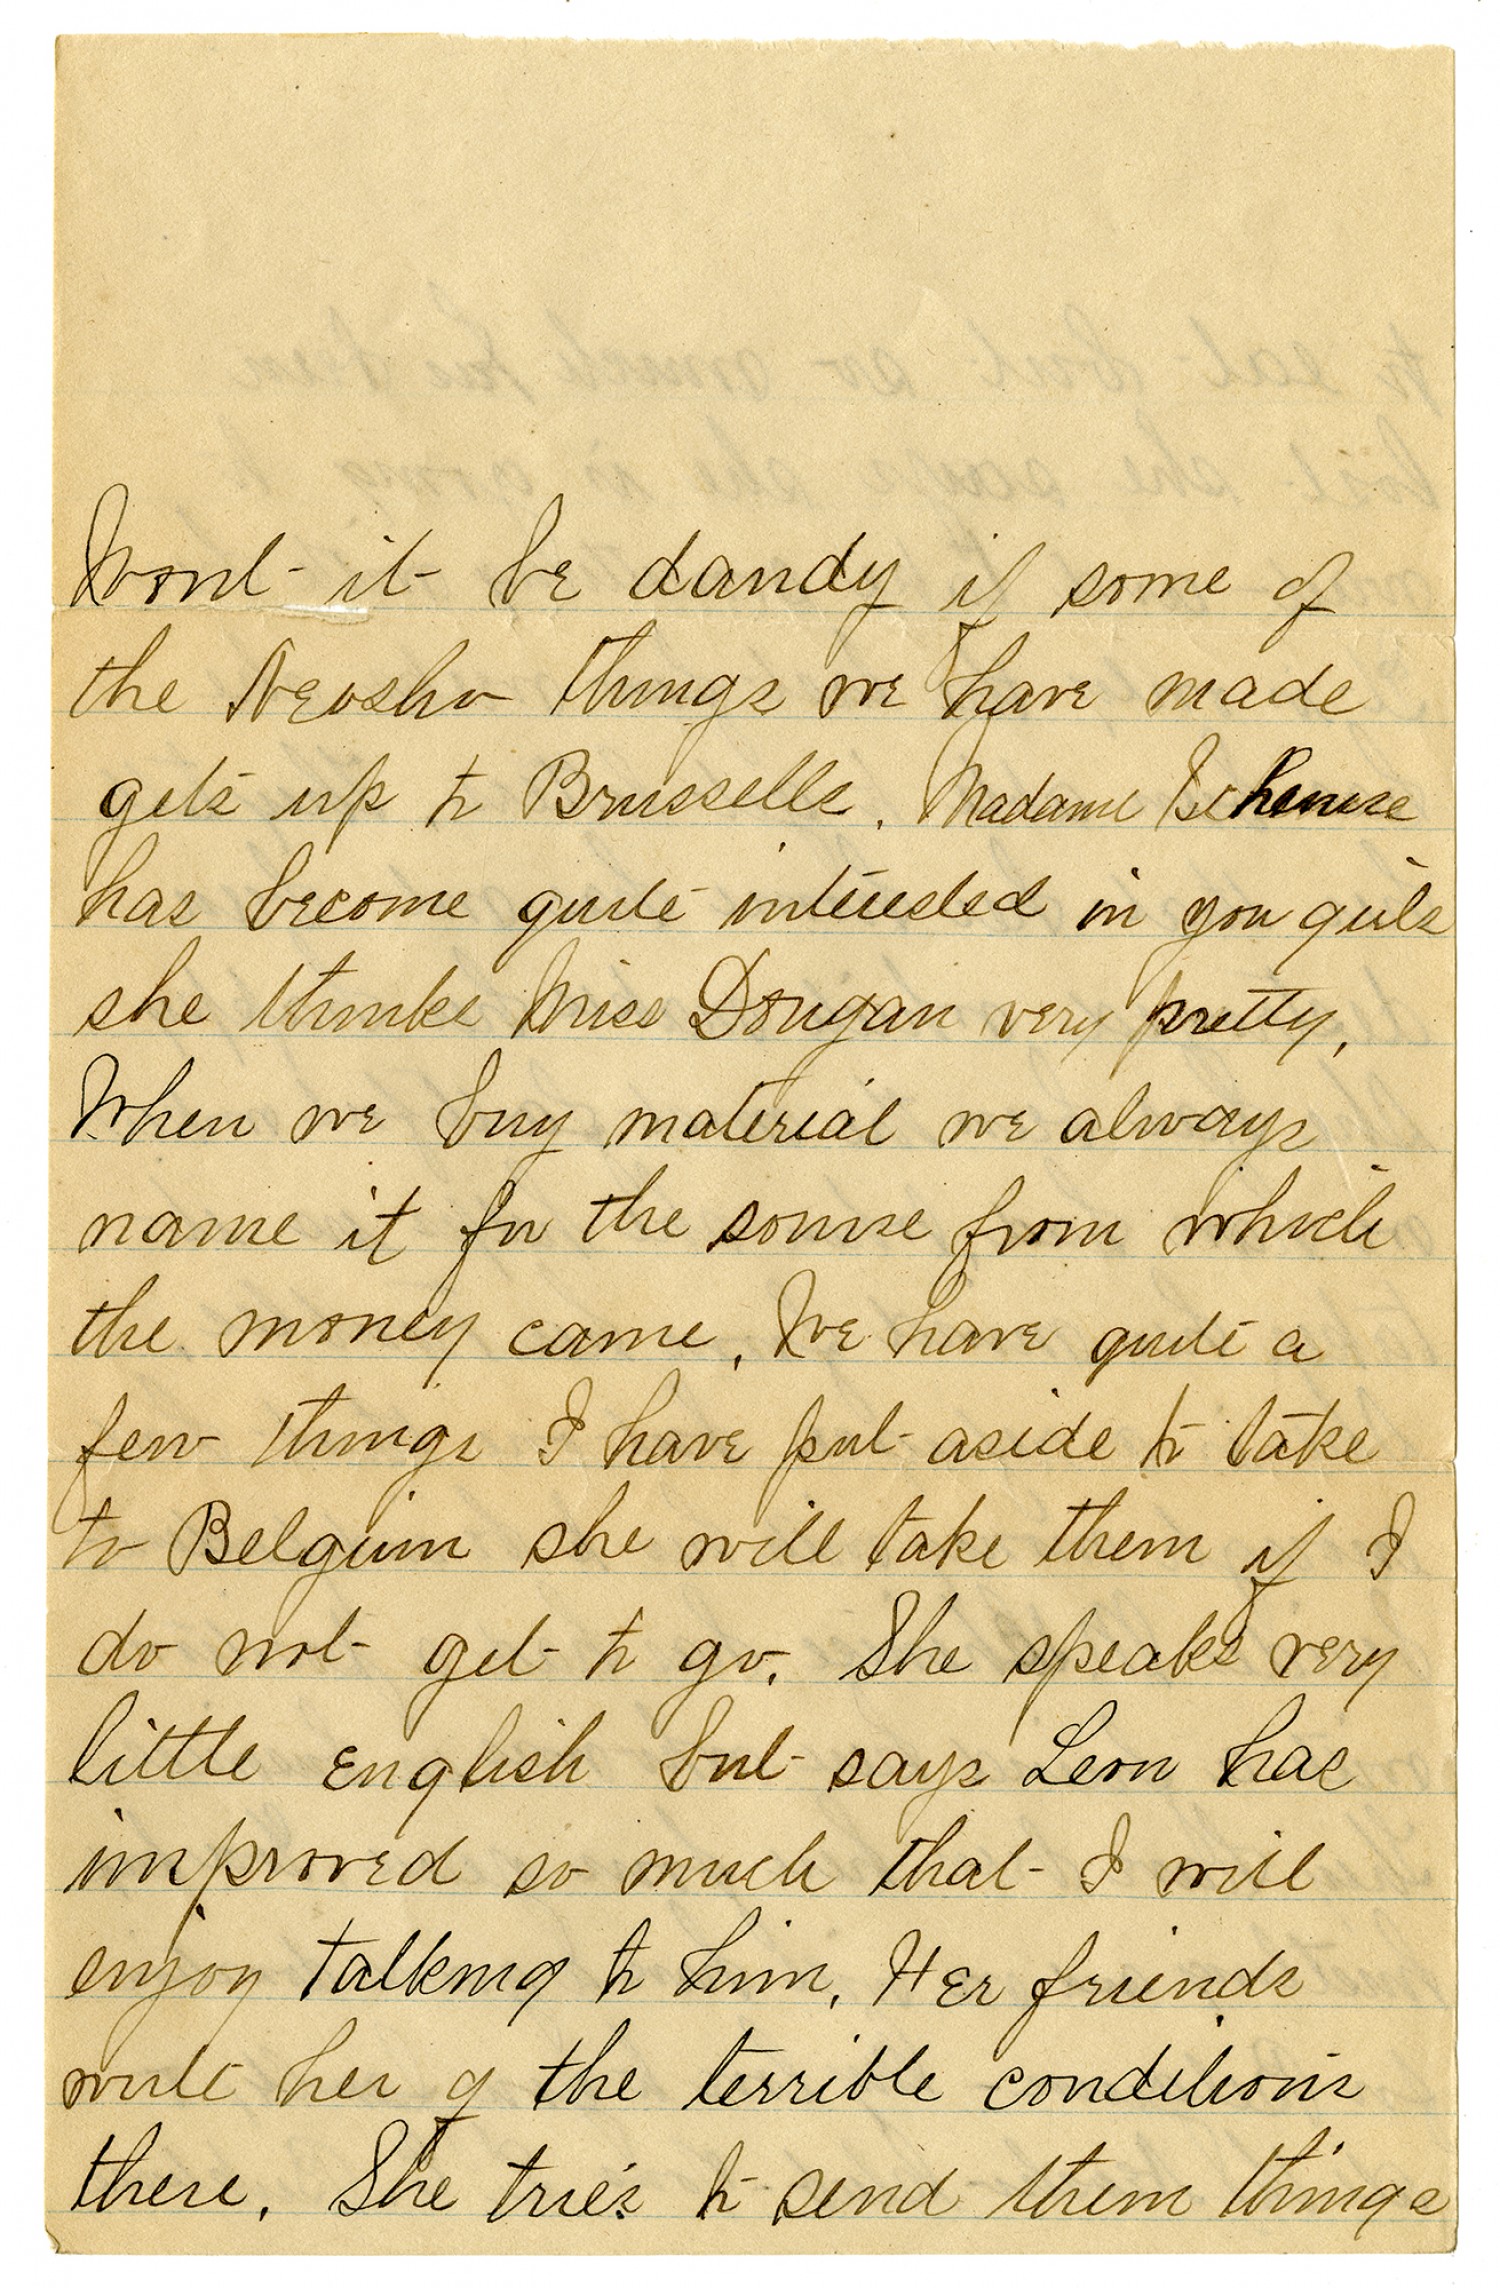 Wont it be dandy if some of
the Neosho things we have made
gets up to Brussells. Madame
has become quite interested in you girls
she thinks Miss Dougan very pretty.
When we buy material we always
name it for the sourse from which
the money came. We have quite a
few things I have put aside to take
to Belgium she will take them if I
do not get to go. She speaks very
little English but says Leon has
improved so much that I will
enjoy talking to him. Her friends
write her of the terrible conditions
there. She tries to send them things